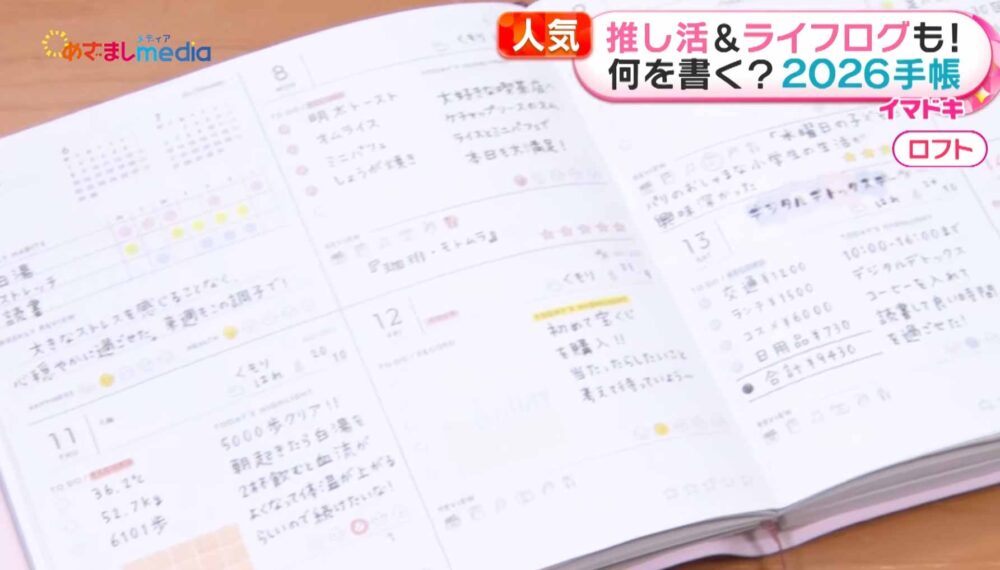 めざましmedia
メディア
人気
推し活&ライフログも!
何を書く?2026手帳
イマドキ
ロフト
8
明太トースト
オムライス
ミニパフェ
しょうが焼き
大好きな喫茶店へ
ケチャップソースのオム
ライスとミニパフェで
本日も大満足!
『珈琲・モトムラ』
白湯
ストレッチ
読書
大きなストレスを感じることなく、
心穏やかに過ごせた。来週もこの調子で!
11
くもり
はれ
20
10
36.2℃
52.7kg
6101歩
5000歩クリア!!
朝起きたら白湯を
2杯飲むと血流が
よくなって体温が上がる
らしいので続けたいな!
12
くもり
初めて宝くじ
を購入!!
当たったらしたいこと
考えて待っていよう〜
『水曜日の子ど
パリのおしゃまな小学生の生活が
興味深かった
デジタルデトックスデー
13
はれ
交通¥1200
ランチ¥1500
コスメ¥6000
日用品¥730
合計¥9430
10:00-16:00まで
デジタルデトックス
コーヒーを入れて
読書して良い時間
を過ごせた!